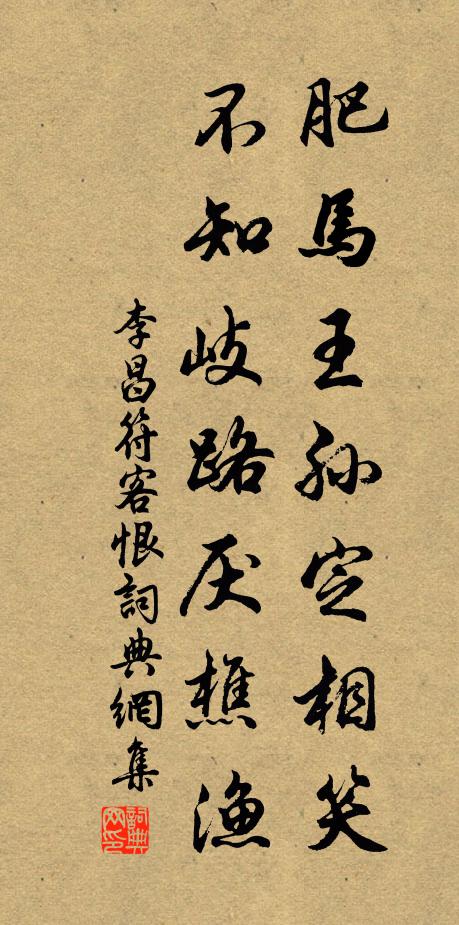 肥馬王孫定相笑
不知岐路厌樵漁
李昌符客恨詞典網集
詞典
网印